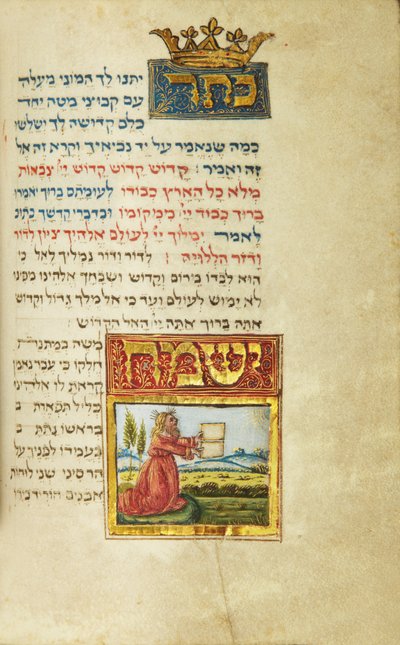 כתר
יתנו לך המוני מעלה
עם קבוצי מטה יחד
כלם קדושה לך ישלשו
כמה שנאמר על יד נביאיך וקרא זה אל
זה ואמר׃ קדוש קדוש קדוש יי׳ צבאות
מלא כל הארץ כבודו׃ לעומתם ברוך יאמרו
ברוך כבוד יי׳ ממקומו׃ ובדברי קדשך כתוב
לאמר׃ ימלוך יי׳ לעולם אלהיך ציון לדור
ודור הללויה׃ לדור ודור נמליך לאל כי
הוא לבדו מרום וקדוש ושבחך אלהינו מפינו
לא ימוש לעולם ועד כי אל מלך גדול וקדוש
אתה ברוך אתה יי׳ האל הקדוש׃
ישמח
משה במתנת
חלקו כי עבד נאמן
קראת לו אלהינו
כליל תפארת ב
בראשו נתת ב
בעמדו לפניך על
הר סיני שני לוחות
אבנים הוריד בידו